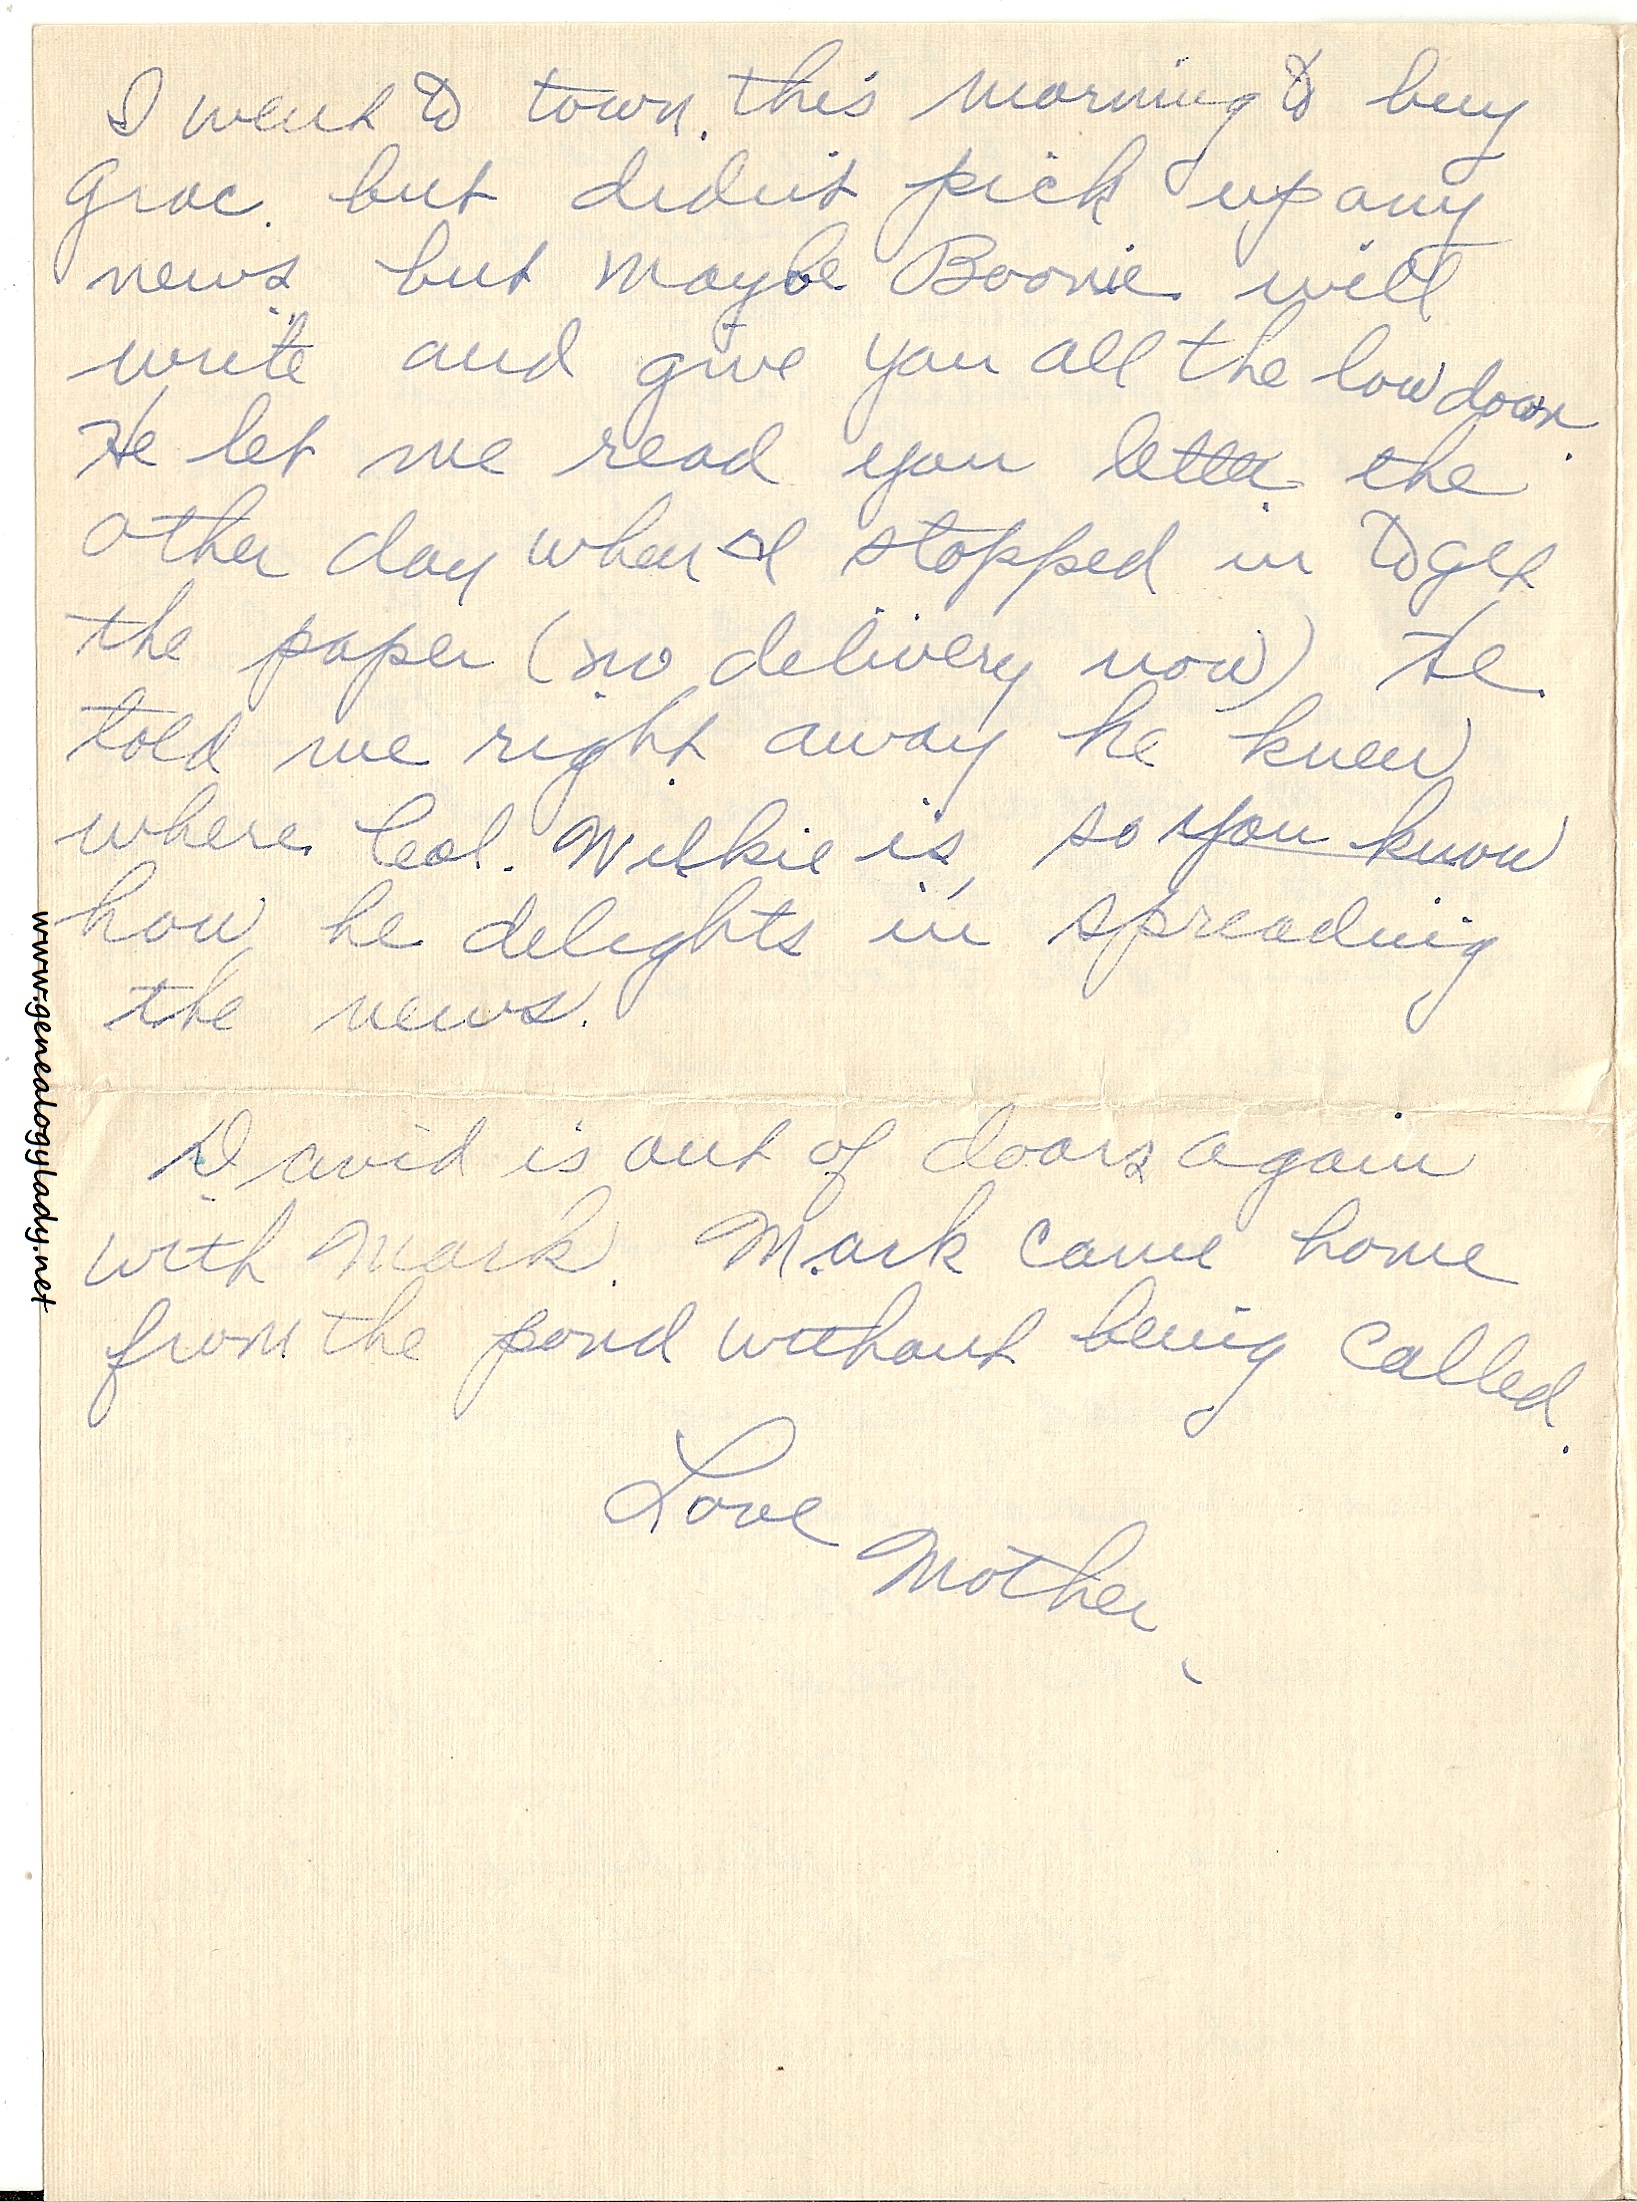 I went to town this morning to buy
groc. but didn't pick up any
news but maybe Boonie will
write and give you all the low down.
He let me read you letter the
other day when I stopped in to get
the paper (no delivery now) He
told me right away he knew
where Col. Wilkie is, so you know
how he delights in spreading
the news.
David is out of doors again
with Mark. Mark came home
from the pond without being called.
Love
Mother
www.genealogylady.net